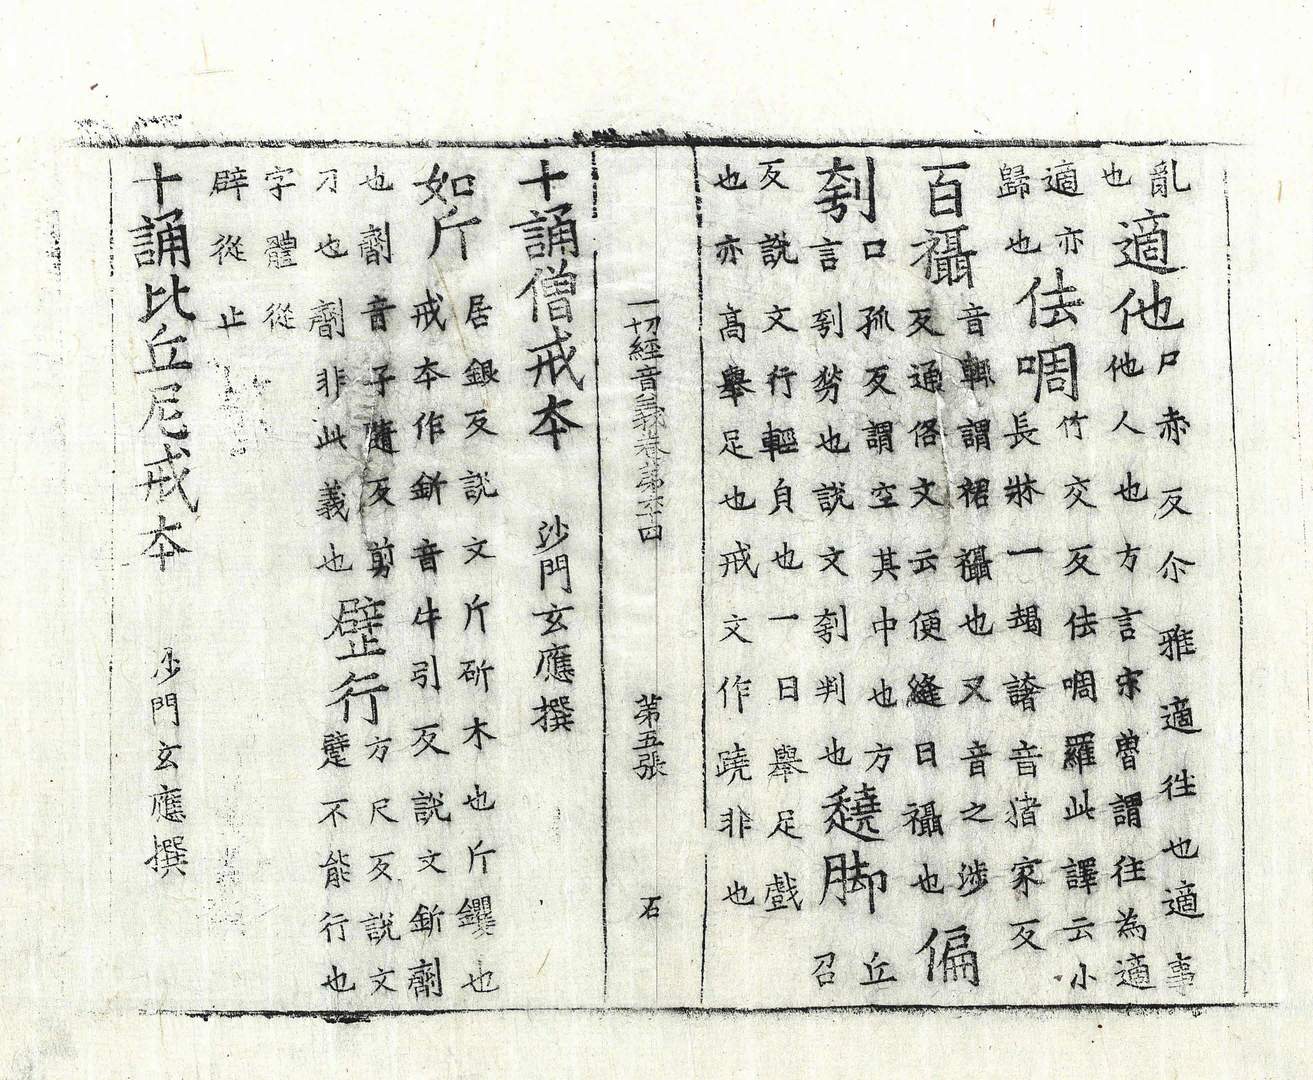 亂
也
適他
尸赤反尒雅適往也適事
他人也方言宋魯謂往為適
適亦
歸也
佉啁
竹交反佉啁羅此譯云小
長牀一朅譇音猪家反
百襵
音輒謂裙襵也又音之涉
反通俗文云便縫曰襵也
偏
刳
口孤反謂空其中也方
言刳剺也說文刳判也
趬脚
丘
召
反說文行輕皃也一曰舉足戲
也亦高舉足也戒文作蹺非也
一切經音義卷第六十四 第五張 石
十誦僧戒本 沙門玄應撰
如斤
居銀反說文斤斫木也斤钁也
戒本作釿音牛引反說文釿劑
也劑音子隨反剪
刀也劑非此義也
躄行
方尺反說文
躄不能行也
字體從
辟從止
十誦比丘尼戒本 沙門玄應撰